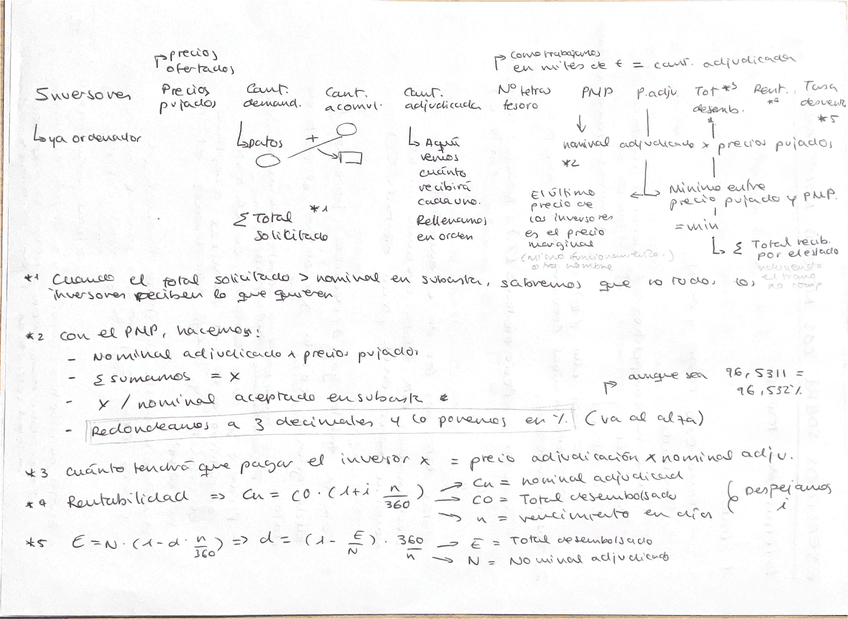 precios
ofertados
como trabajamos
en miles de € = cant. adjudicada
Inversores Precios pujados Cant. demand. Cant. acomul. Cant. adjudicada Nº letras tesoro PMP P. adju Tot *3 desemb. Rent. *4 Tasa descuen. *5
ya ordenador
Datos +
Aquí
vemos
cuánto
recibirá
cada uno.
Rellenamos
en orden
nominal adjudicado x precios pujados
*2
El último
precio de
los inversores
es el precio
marginal
Mínimo entre
precio pujado y PMP.
= min
Σ Total recib.
por el estado
Σ Total *1
solicitado
*1 Cuando el total solicitado > nominal en subasta, sabremos que no todos los
inversores reciben lo que quieren
*2 con el PMP, hacemos:
- Nominal adjudicado x precios pujados
- Σ sumamos = x
- x / nominal aceptado en subasta
- Redondeamos a 3 decimales y lo ponemos en % (va al alza)
aunque sea 96,5311 =
96,532%
*3 cuánto tendrá que pagar el inversor x = precio adjudicación x nominal adju.
*4 Rentabilidad => Cn = C0 · (1+i n/360)
Cn = nominal adjudicad
C0 = Total desembolsado
n = vencimiento en días
Despejamos
i
*5 E = N · (1-d · n/360) => d = (1 - E/N) · 360/n
E = Total desembolsado
N = Nominal adjudicado